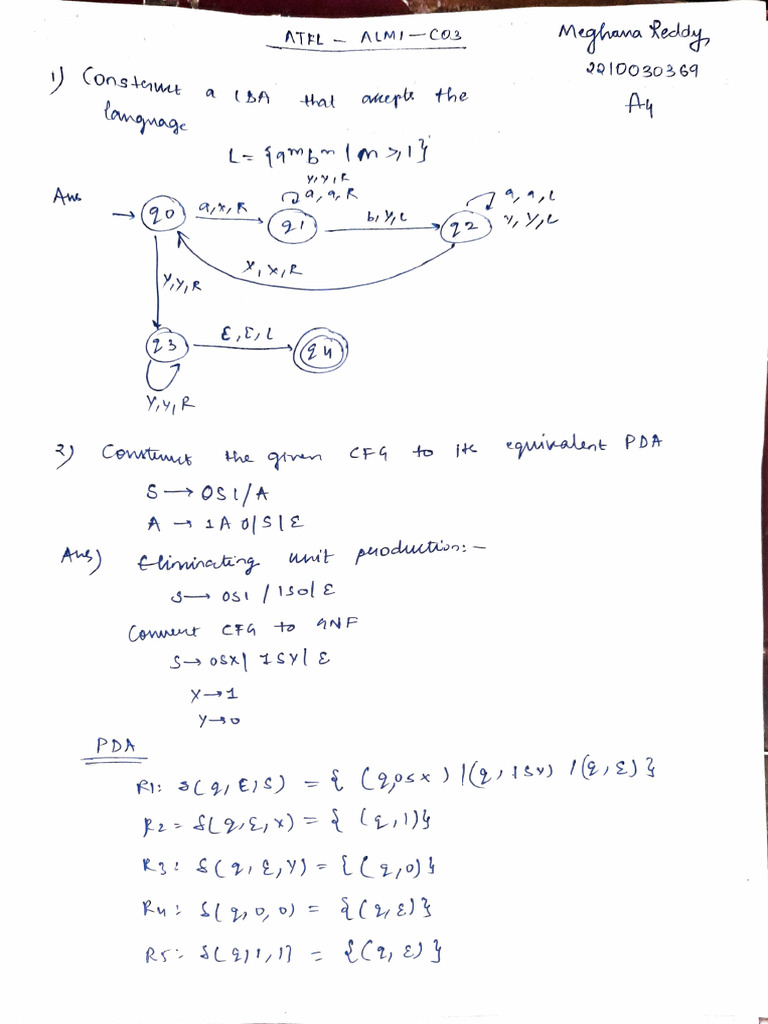 ATFL - ALM1 - CO3
Meghana Reddy
2210030369
A4
1) Construct a LBA that accepts the
language
L = {aᵐbᵐ | m ≥ 1}
Ans
q0
a, x, R
y, y, R
a, a, R
q1
b, y, L
q2
a, a, L
y, y, L
x, x, R
y, y, R
q3
ε, ε, L
q4
y, y, R
2) Construct the given CFG to its equivalent PDA
S → 0S1/A
A → 1A0|S|ε
Ans) Eliminating unit production:-
S → 0S1 / 1S0 | ε
Convert CFG to GNF
S → 0SX | 1SY | ε
X → 1
Y → 0
PDA
R1: δ(q, ε, S) = { (q, 0SX) | (q, 1SY) | (q, ε) }
R2 = δ(q, ε, X) = { (q, 1) }
R3: δ(q, ε, Y) = { (q, 0) }
R4: δ(q, 0, 0) = { (q, ε) }
R5: δ(q, 1, 1) = { (q, ε) }